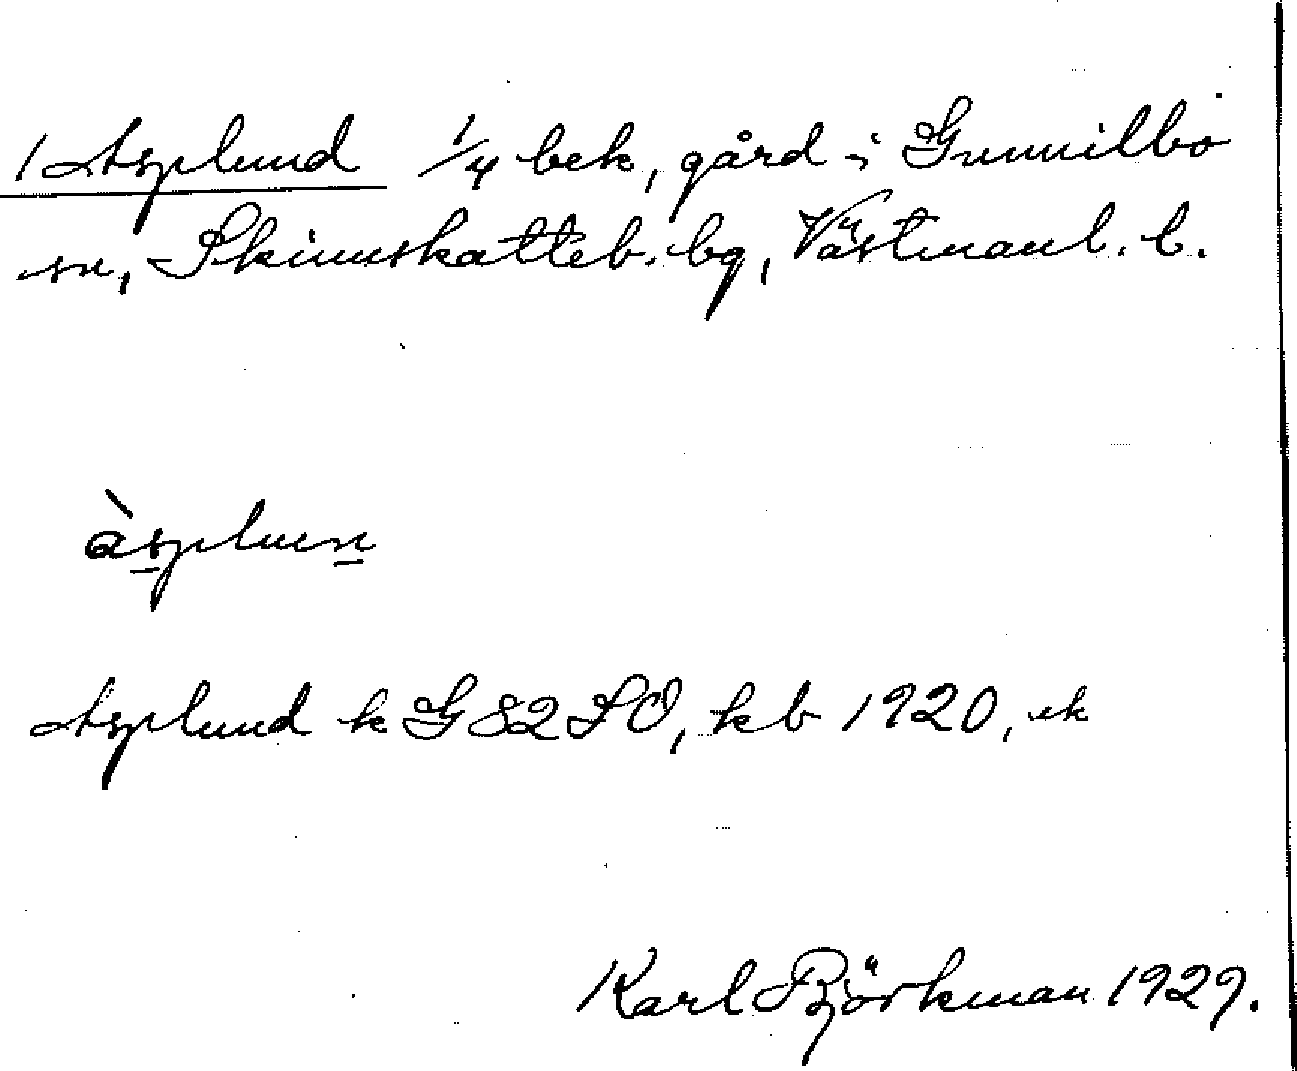 1 Asplund 1/4 bek, gård i Gunnilbo
sn, Skinnskatteb. bg, Västmanl. l.
àsplun
Asplund k G 82 SO, kb 1920, ek
Karl Björkman 1929.